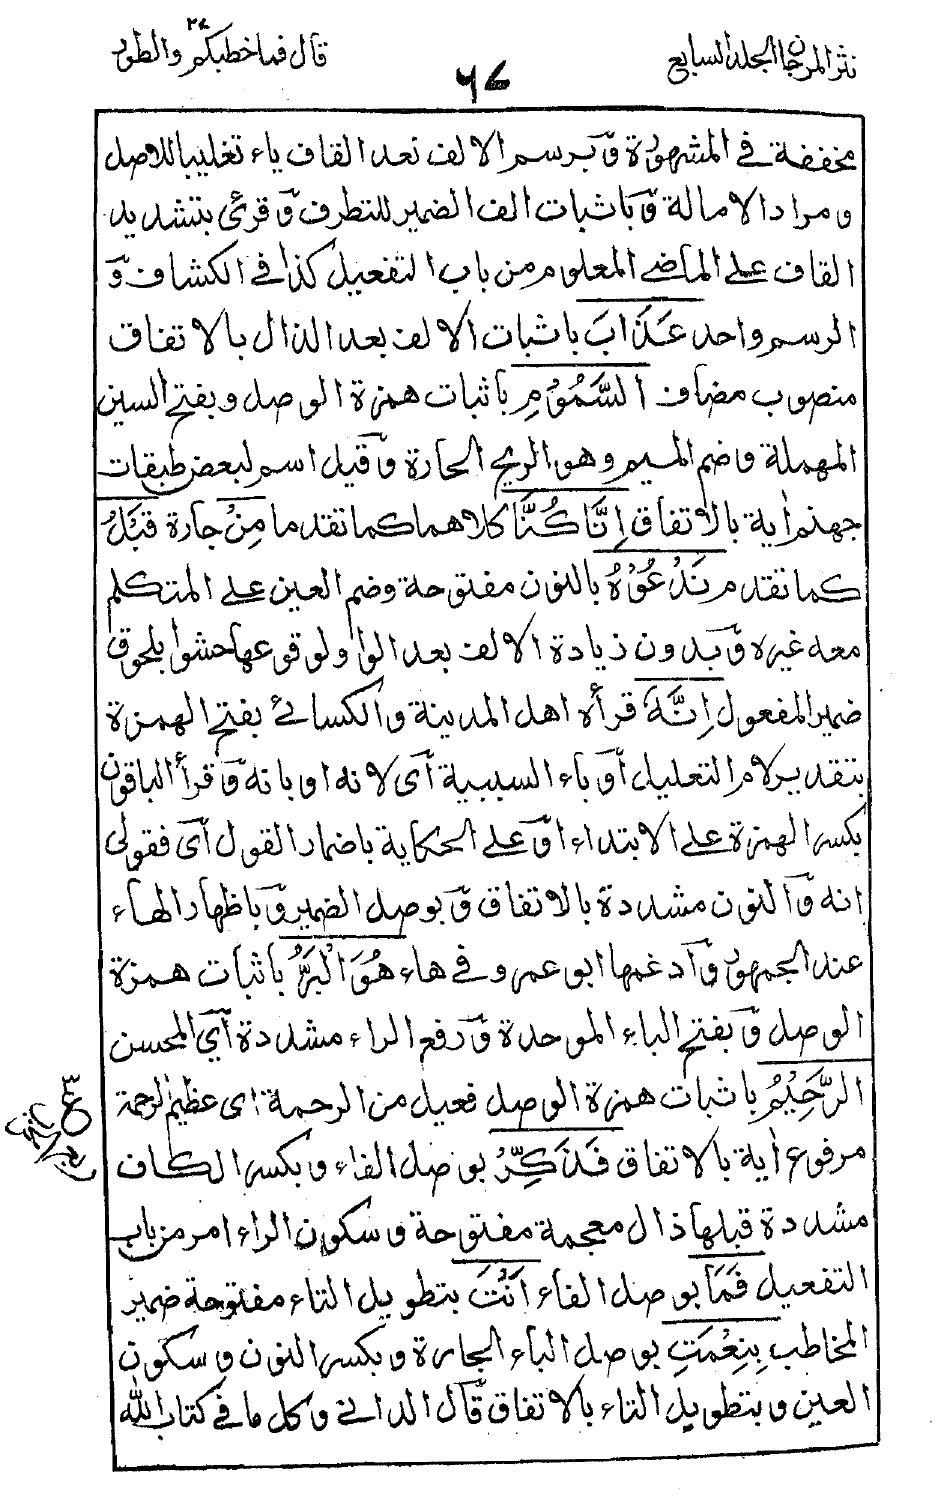 نثر المرجان الجلد السابع
٦٧
قال فما خطبكم ٢٧ والطور
مخففة في المشهورة وبرسم الالف بعد القاف ياء تغليبا للاصل
ومراد الامالة وباثبات الف الضمير للتطرف وقرئ بتشديد
القاف على الماضي المعلوم من باب التفعيل كذا في الكشاف و
الرسم واحد عَذَابَ باثبات الالف بعد الذال بالاتفاق
منصوب مضاف السَّمُوْمِ باثبات همزة الوصل وبفتح السين
المهملة وضم الميم وهو الريح الحارة وقيل اسم لبعض طبقات
جهنم اية بالاتفاق اِنَّا كُنَّا كلاهما كما تقدما مِنْ جارة قَبْلُ
كما تقدم نَدْعُوْهُ بالنون مفتوحة وضم العين على المتكلم
معه غيره وبدون زيادة الالف بعد الواو لوقوعها حشوا بلحوق
ضمير المفعول اِنَّهٗ قرأه اهل المدينة والكسائي بفتح الهمزة
بتقدير لام التعليل أو باء السببية أي لانه او بانه وقرأ الباقون
بكسر الهمزة على الابتداء او على الحكاية باضمار القول أي فقولي
انه والنون مشددة بالاتفاق وبوصل الضمير وباظهار الهاء
عند الجمهور وأدغمها ابو عمرو في هاء هُوَ الْبَرُّ باثبات همزة
الوصل وبفتح الباء الموحدة ورفع الراء مشددة أي المحسن
الرَّحِيْمُ باثبات همزة الوصل فعيل من الرحمة اى عظيم الرحمة
مرفوع اية بالاتفاق فَذَكِّرْ بوصل الفاء وبكسر الكاف
مشددة قبلها ذال معجمة مفتوحة وسكون الراء امر من باب
التفعيل فَمَآ بوصل الفاء اَنْتَ بتطويل التاء مفتوحة ضمير
المخاطب بِنِعْمَتِ بوصل الباء الجارة وبكسر النون وسكون
العين وبتطويل التاء بالاتفاق قال الداني وكل ما في كتاب الله